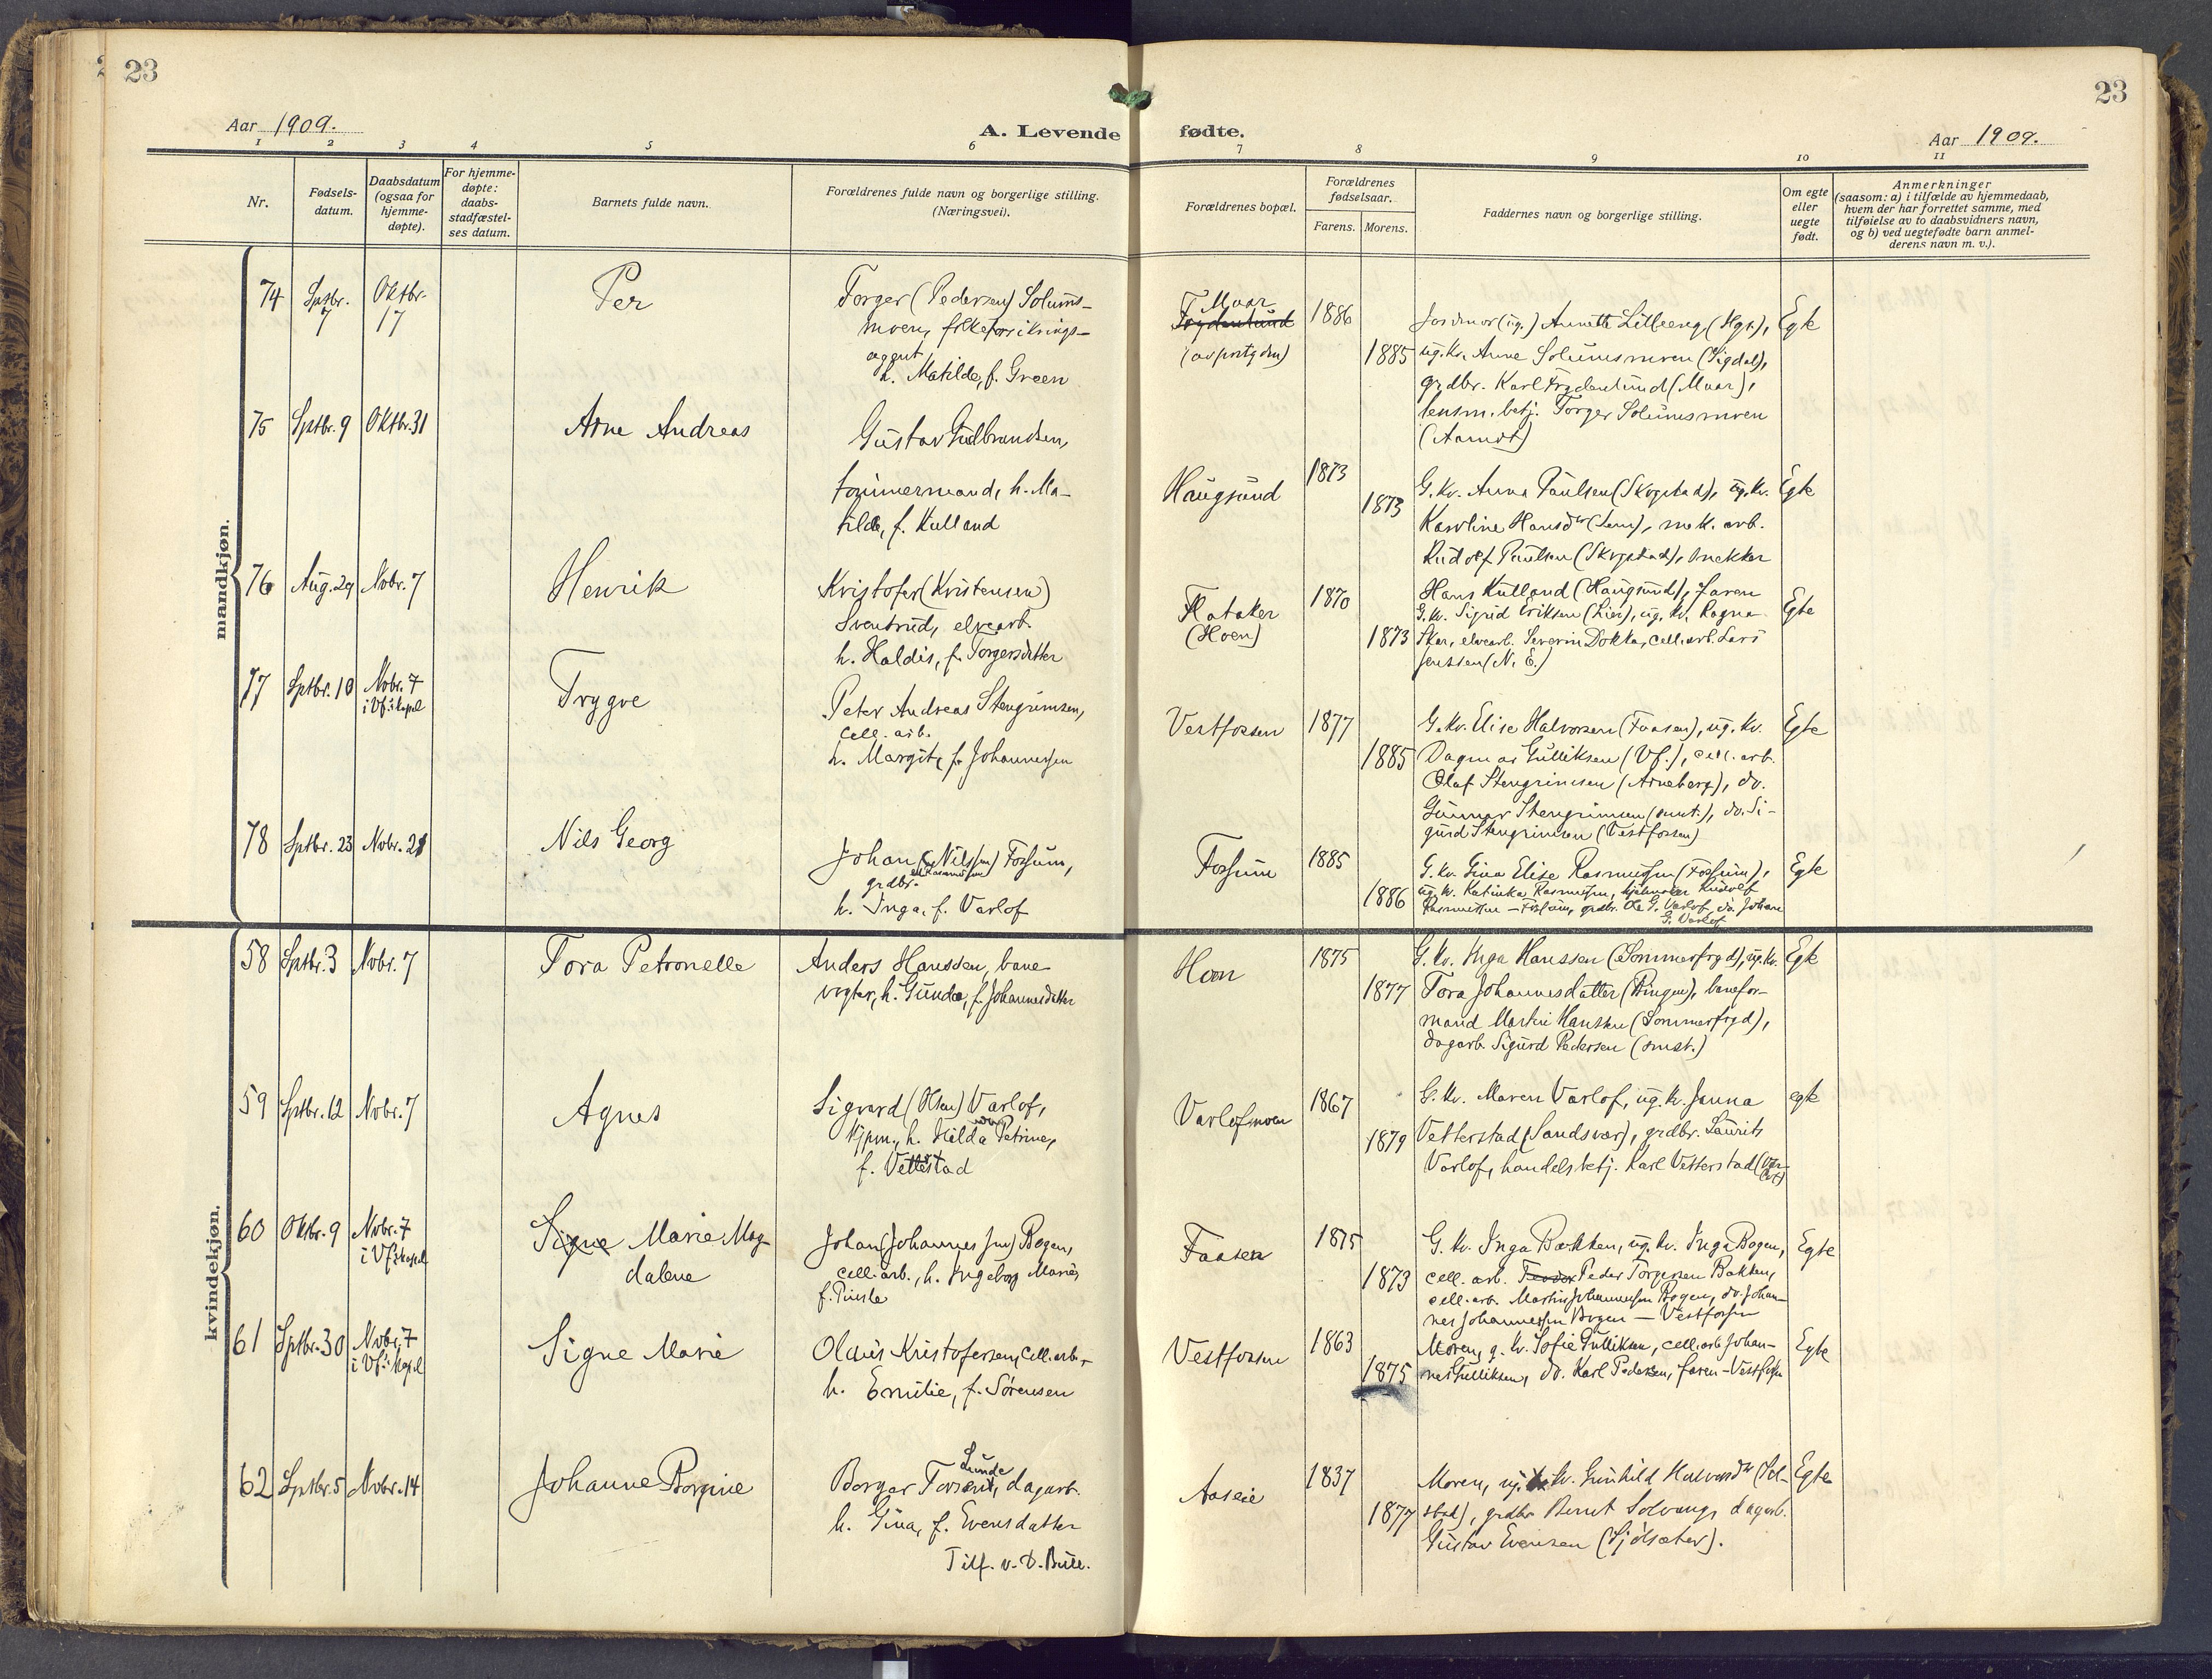 23
23
Aar 1909.
A. Levende fødte.
Aar 1909.
1 2 3 4 5 6 7 8 9 10 11
Nr.
Fødsels-
datum.
Daabsdatum
(ogsaa for
hjemme-
døpte).
For hjemme-
døpte:
daabs-
stadfæstel-
ses datum.
Barnets fulde navn.
Forældrenes fulde navn og borgerlige stilling.
(Næringsvei).
Forældrenes bopæl.
Forældrenes
fødselsaar.
Farens. Morens.
Faddernes navn og borgerlige stilling.
Om egte
eller
uegte
født.
Anmerkninger
(saasom: a) i tilfælde av hjemmedaab,
hvem der har forrettet samme, med
tilføielse av to daabsvidners navn,
og b) ved uegtefødte barn anmel-
derens navn m. v.).
mandkjøn.
74 Sptbr. 7 Oktbr. 17
Per
Torger (Pedersen) Solums-
moen, folkeforsikrings-
agent
h. Matilde, f. Green
Muar
Frydenlund
1886
1885
Jordmor (ug.) Annette Lilleeng (Hgs.),
ug. kv. Anne Solumsmoen (Sigdal),
grdbr. Karl Frydenlund (Muar),
lensm. betj. Torger Solumsmoen
(Aamot)
Egte
75 Sptbr. 9 Oktbr. 31
Arne Andreas
Gustav Gulbrandsen,
tømmermand, h. Ma-
tilde, f. Kulland
Haugsund
1873
1873
G. kv. Anna Paulsen (Skogstad), ug. kv.
Karoline Hansdtr (Lens), mek. arb.
Rudolf Paulsen (Skogstad), snekker
Hans Kulland (Haugsund), Faren
Egte
76 Aug. 29 Nobr. 7
Henrik
Kristofer (Kristensen)
Sventrud, elvearb.
h. Haldis, f. Torgersdatter
Flataker
(Hoen)
1870
1873
G. kv. Sigrid Eriksen (Lier), ug. kv. Ragna
Skar, elvearb. Severin Dokka, cell. arb. Lars
Jenssen (N. E.)
Egte
77 Sptbr. 10 Nobr. 7
i Vf.s kapel
Trygve
Peter Andreas Stengrimsen,
cell. arb.
h. Margit, f. Johannessen
Vestfossen
1877
1885
G. kv. Elise Halvorsen (Faasen), ug. kv.
Dagmar Gulliksen (Vf.), cell. arb.
Olaf Stengrimsen (Arneberg), do.
Gunnar Stengrimsen (smst.), do. Si-
gurd Stengrimsen (Vestfossen)
Egte
78 Sptbr. 23 Nobr. 21
Nils Georg
Johan (Nilssen) Fossum,
grdbr.
h. Inga, f. Varlof
Fossum
1885
1886
G. kv. Gina Elise Rasmussen (Fossum),
ug. kv. Katinka Rasmussen, Rudolf
Rasmussen – Fossum, grdbr. Ole G. Varlof, do. Johan
G. Varlof
Egte
kvindekjøn.
58 Sptbr. 3 Nobr. 7
Tora Petronelle
Anders Hanssen, bane-
vogter, h. Gunda, f. Johannesdatter
Hoen
1875
1877
G. kv. Inga Hanssen (Sommerfryd), ug. kv.
Tora Johannesdatter (Ringen), banefor-
mand Martin Hanssen (Sommerfryd),
dagarb. Sigurd Pedersen (smst.)
Egte
59 Sptbr. 12 Nobr. 7
Agnes
Sigvard (Olsen) Varlof,
kjpm., h. Hilda Petrine,
f. Vetterstad
Varlofmoen
1867
1879
G. kv. Maren Varlof, ug. kv. Janna
Vetterstad (Sandsvær), grdbr. Laurits
Varlof, handelsbetj. Karl Vetterstad
egte
60 Oktbr. 9 Nobr. 7
i Vf.s kapel
Signe Marie Mag-
dalene
Johan (Johannessen) Bogen,
cell. arb., h. Ingeborg Marie,
Faasen
1875
1873
G. kv. Inga Bakken, ug. kv. Inga Bogen,
cell. arb. Peder Torgersen Bakken,
cell. arb. Martin Johannessen Bogen, do. Johan-
nes Johannessen Bogen – Vestfossen
Egte
61 Sptbr. 30 Nobr. 7
i Vf.s kapel
Signe Marie
Olaus Kristofersen, cell. arb.,
h. Emilie, f. Sørensen
Vestfossen
1863
1875
Moren, g. kv. Sofie Gulliksen, cell. arb. Johan-
nes Gulliksen, do. Karl Pedersen, faren – Vestfossen
Egte
62 Sptbr. 5 Nobr. 14
Johanne Borgine
Lunde
Borger Torsen, dagarb.
h. Gina, f. Evensdatter
Aaseie
1837
1877
Moren, ug. kv. Gunhild Halvorsdtr (Sol-
stad), grdbr. Bernt Solvang, dagarb.
Gustav Evensen (Sjølsæter).
Egte
Tilf. v. D. Bull.